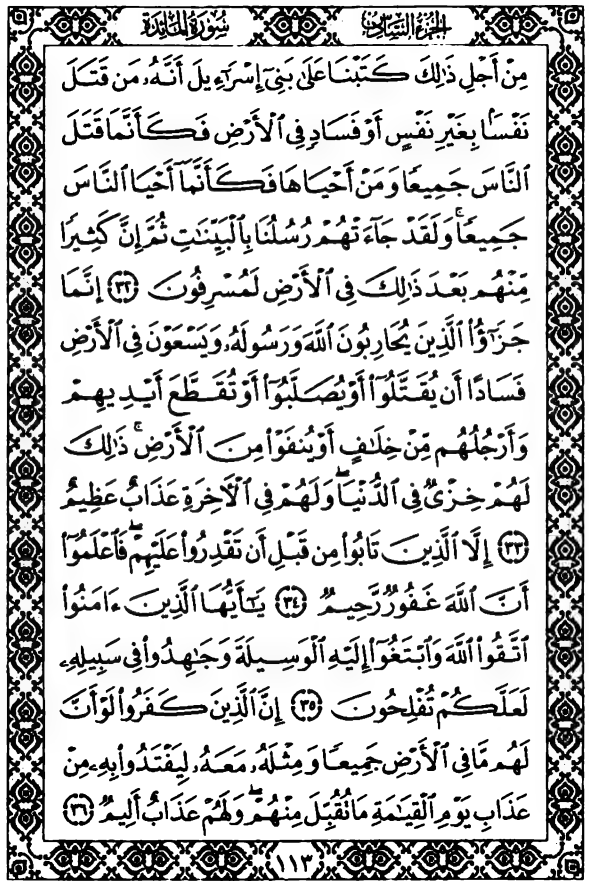 سُورَةُ المَائِدَة
الجُزْءُ السَّادِسُ
مِنْ أَجْلِ ذَٰلِكَ كَتَبْنَا عَلَىٰ بَنِىٓ إِسْرَٰٓءِيلَ أَنَّهُۥ مَن قَتَلَ
نَفْسًۢا بِغَيْرِ نَفْسٍ أَوْ فَسَادٍ فِى ٱلْأَرْضِ فَكَأَنَّمَا قَتَلَ
ٱلنَّاسَ جَمِيعًا وَمَنْ أَحْيَاهَا فَكَأَنَّمَآ أَحْيَا ٱلنَّاسَ
جَمِيعًا ۚ وَلَقَدْ جَآءَتْهُمْ رُسُلُنَا بِٱلْبَيِّنَٰتِ ثُمَّ إِنَّ كَثِيرًا
مِّنْهُم بَعْدَ ذَٰلِكَ فِى ٱلْأَرْضِ لَمُسْرِفُونَ ٣٢ إِنَّمَا
جَزَٰٓؤُا۟ ٱلَّذِينَ يُحَارِبُونَ ٱللَّهَ وَرَسُولَهُۥ وَيَسْعَوْنَ فِى ٱلْأَرْضِ
فَسَادًا أَن يُقَتَّلُوٓا۟ أَوْ يُصَلَّبُوٓا۟ أَوْ تُقَطَّعَ أَيْدِيهِمْ
وَأَرْجُلُهُم مِّنْ خِلَٰفٍ أَوْ يُنفَوْا۟ مِنَ ٱلْأَرْضِ ۚ ذَٰلِكَ
لَهُمْ خِزْىٌ فِى ٱلدُّنْيَا ۖ وَلَهُمْ فِى ٱلْءَاخِرَةِ عَذَابٌ عَظِيمٌ
٣٣ إِلَّا ٱلَّذِينَ تَابُوا۟ مِن قَبْلِ أَن تَقْدِرُوا۟ عَلَيْهِمْ ۖ فَٱعْلَمُوٓا۟
أَنَّ ٱللَّهَ غَفُورٌ رَّحِيمٌ ٣٤ يَٰٓأَيُّهَا ٱلَّذِينَ ءَامَنُوا۟
ٱتَّقُوا۟ ٱللَّهَ وَٱبْتَغُوٓا۟ إِلَيْهِ ٱلْوَسِيلَةَ وَجَٰهِدُوا۟ فِى سَبِيلِهِۦ
لَعَلَّكُمْ تُفْلِحُونَ ٣٥ إِنَّ ٱلَّذِينَ كَفَرُوا۟ لَوْ أَنَّ
لَهُم مَّا فِى ٱلْأَرْضِ جَمِيعًا وَمِثْلَهُۥ مَعَهُۥ لِيَفْتَدُوا۟ بِهِۦ مِنْ
عَذَابِ يَوْمِ ٱلْقِيَٰمَةِ مَا تُقُبِّلَ مِنْهُمْ ۖ وَلَهُمْ عَذَابٌ أَلِيمٌ ٣٦
١١٣